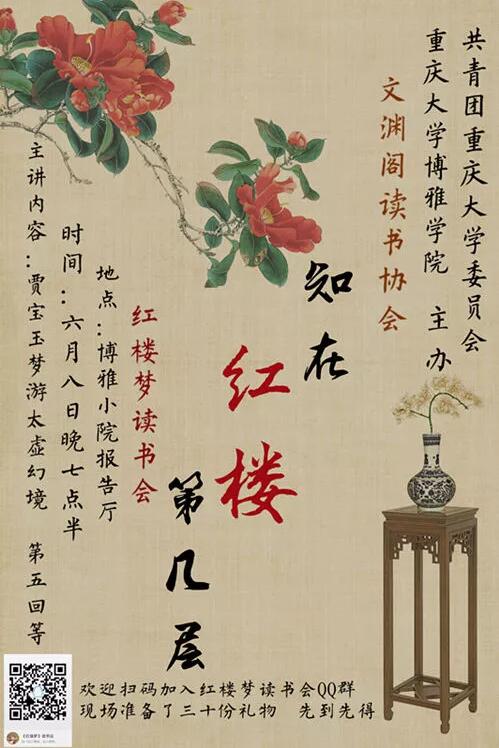 共青团重庆大学委员会
重庆大学博雅学院 主办
文渊阁读书协会
知在
红楼
第几层
红楼梦读书会
地点：博雅小院报告厅
时间：六月八日晚七点半
主讲内容：贾宝玉梦游太虚幻境 第五回等
欢迎扫码加入红楼梦读书会QQ群
现场准备了三十份礼物 先到先得